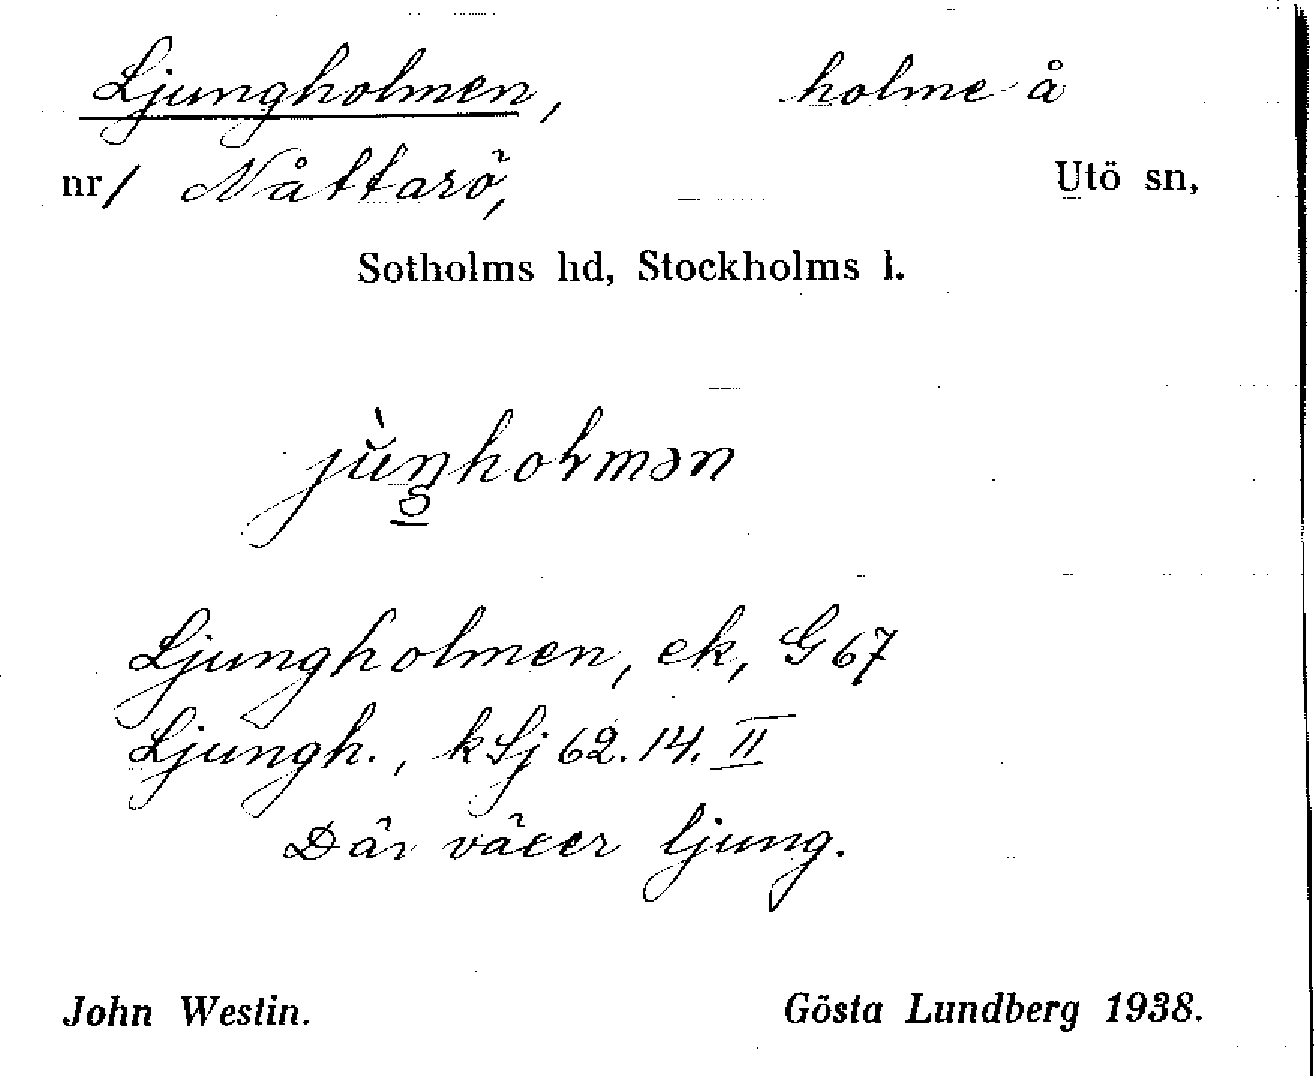 Ljungholmen, holme å
nr/ Nåttarö, Utö sn,
Sotholms hd, Stockholms l.
jùŋholmən
Ljungholmen, ek, G 67
Ljungh., k Sj 62. 14. II
Där växer ljung.
John Westin. Gösta Lundberg 1938.